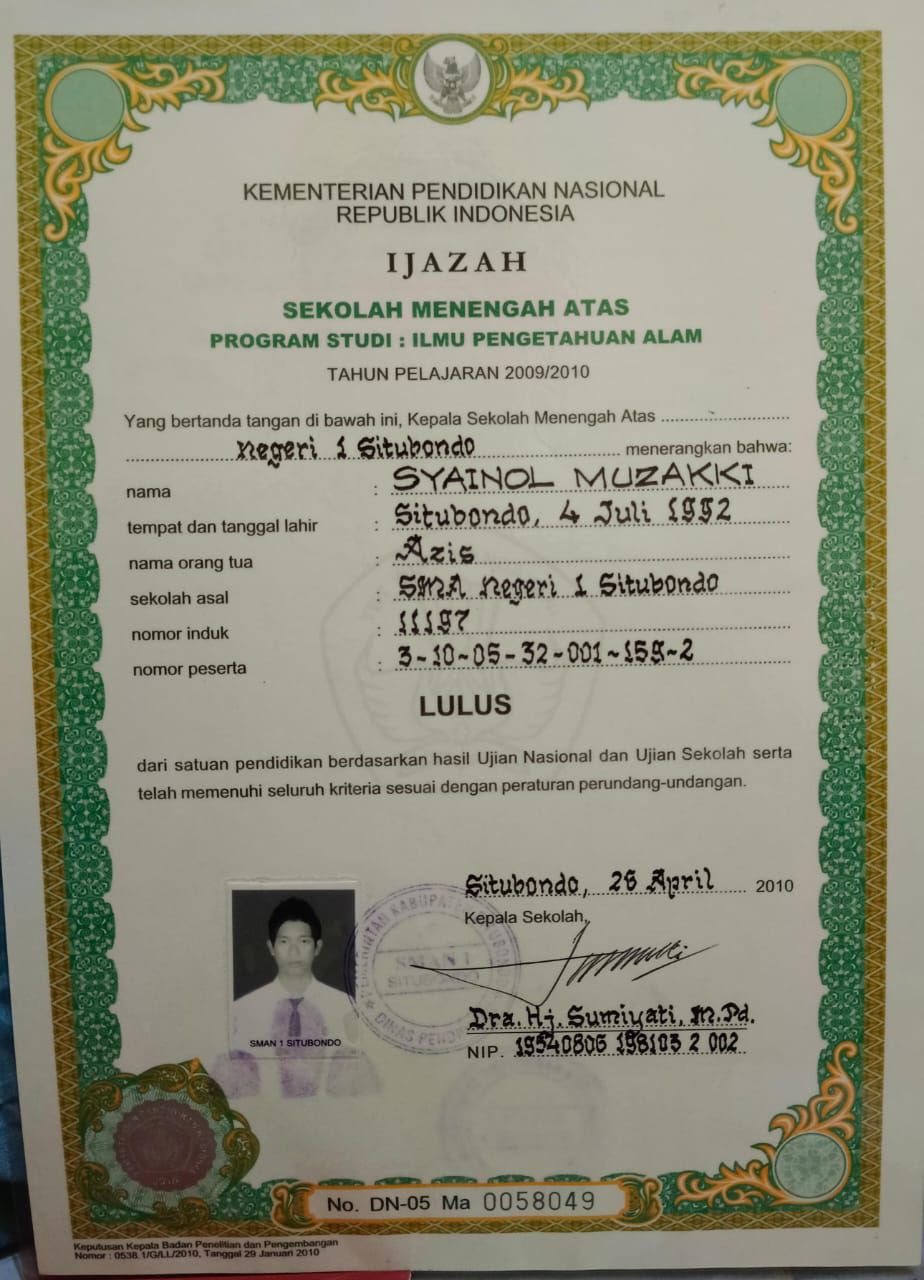 KEMENTERIAN PENDIDIKAN NASIONAL
REPUBLIK INDONESIA
IJAZAH
SEKOLAH MENENGAH ATAS
PROGRAM STUDI : ILMU PENGETAHUAN ALAM
TAHUN PELAJARAN 2009/2010
Yang bertanda tangan di bawah ini, Kepala Sekolah Menengah Atas
Negeri 1 Situbondo menerangkan bahwa:
nama : SYAINOL MUZAKKI
tempat dan tanggal lahir : Situbondo, 4 Juli 1992
nama orang tua : Azis
sekolah asal : SMA Negeri 1 Situbondo
nomor induk : 11197
nomor peserta : 3-10-05-32-001-159-2
LULUS
dari satuan pendidikan berdasarkan hasil Ujian Nasional dan Ujian Sekolah serta
telah memenuhi seluruh kriteria sesuai dengan peraturan perundang-undangan.
Situbondo, 26 April 2010
Kepala Sekolah,
SMAN 1
SITUBONDO
Dra. Hj. Sumiyati, M.Pd.
NIP. 19540806 198103 2 002
SMAN 1 SITUBONDO
No. DN-05 Ma 0058049
Keputusan Kepala Badan Penelitian dan Pengembangan
Nomor : 0538.1/G/LL/2010, Tanggal 29 Januari 2010